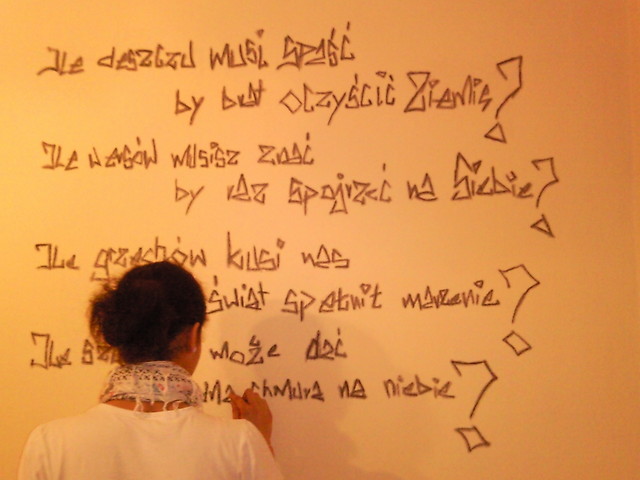 Ile deszczu musi spaść
by brat oczyścić Ziemię?
Ile wersów musisz znać
by raz spojrzeć na Siebie?
Ile grzechów kusi nas
świat spełnił marzenie?
Ile może dać
Ma chmura na niebie?